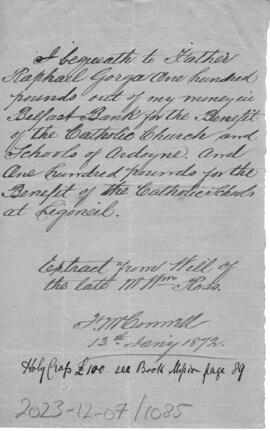 I bequeath to Father
Raphael Gorga One hundred
pounds out of my money in
Belfast Bank for the Benefit
of the Catholic Church and
Schools of Ardoyne. And
One hundred pounds for the
Benefit of the Catholic Schools
at Ligoneil.
Extract from Will of
the late Mr Wm Ross.
McConnell
13th Jany 1872.
Holy Cross £100. see Book Mission page 89
2023-12-07/1085